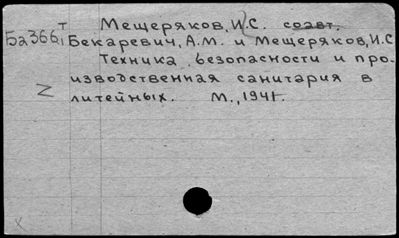 Мещеряков, И.С. соавт.
Ба366 Т1 Бекаревич, А.М. и Мещеряков, И.С
Техника безопасности и про-
изводственная санитария в
литейных. М., 1941.